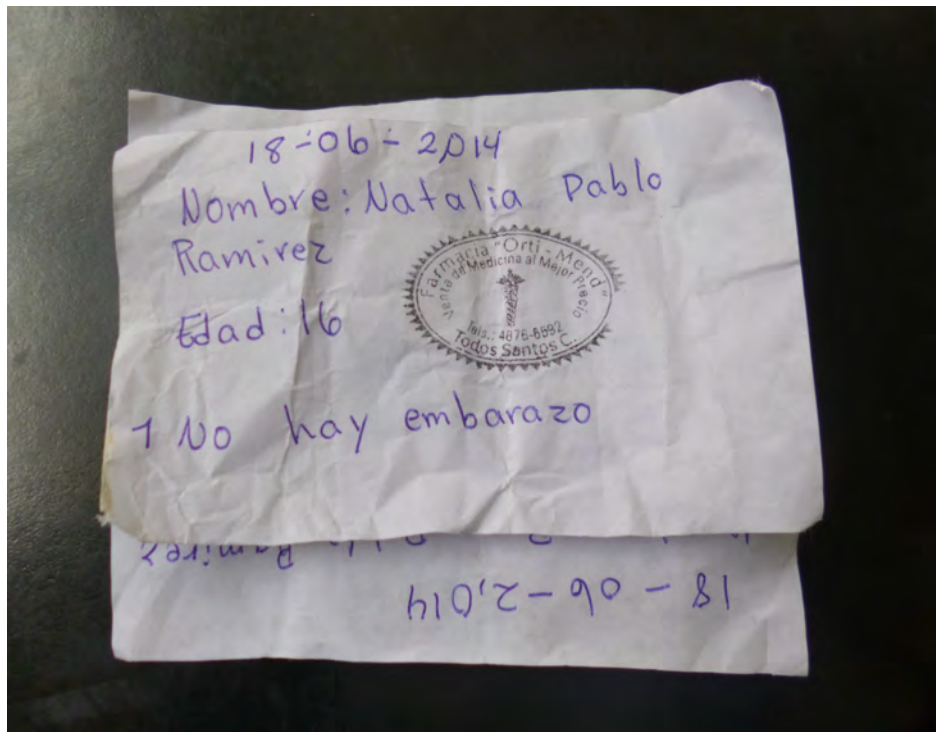 18-06-2,014
Nombre: Natalia Pablo
Ramirez
Farmacia "Orti-Mend"
Venta de Medicina al Mejor Precio
Tels.: 4876-6592
Todos Santos C.
Edad: 16
1 No hay embarazo
Pablo Ramirez
18-06-2,014